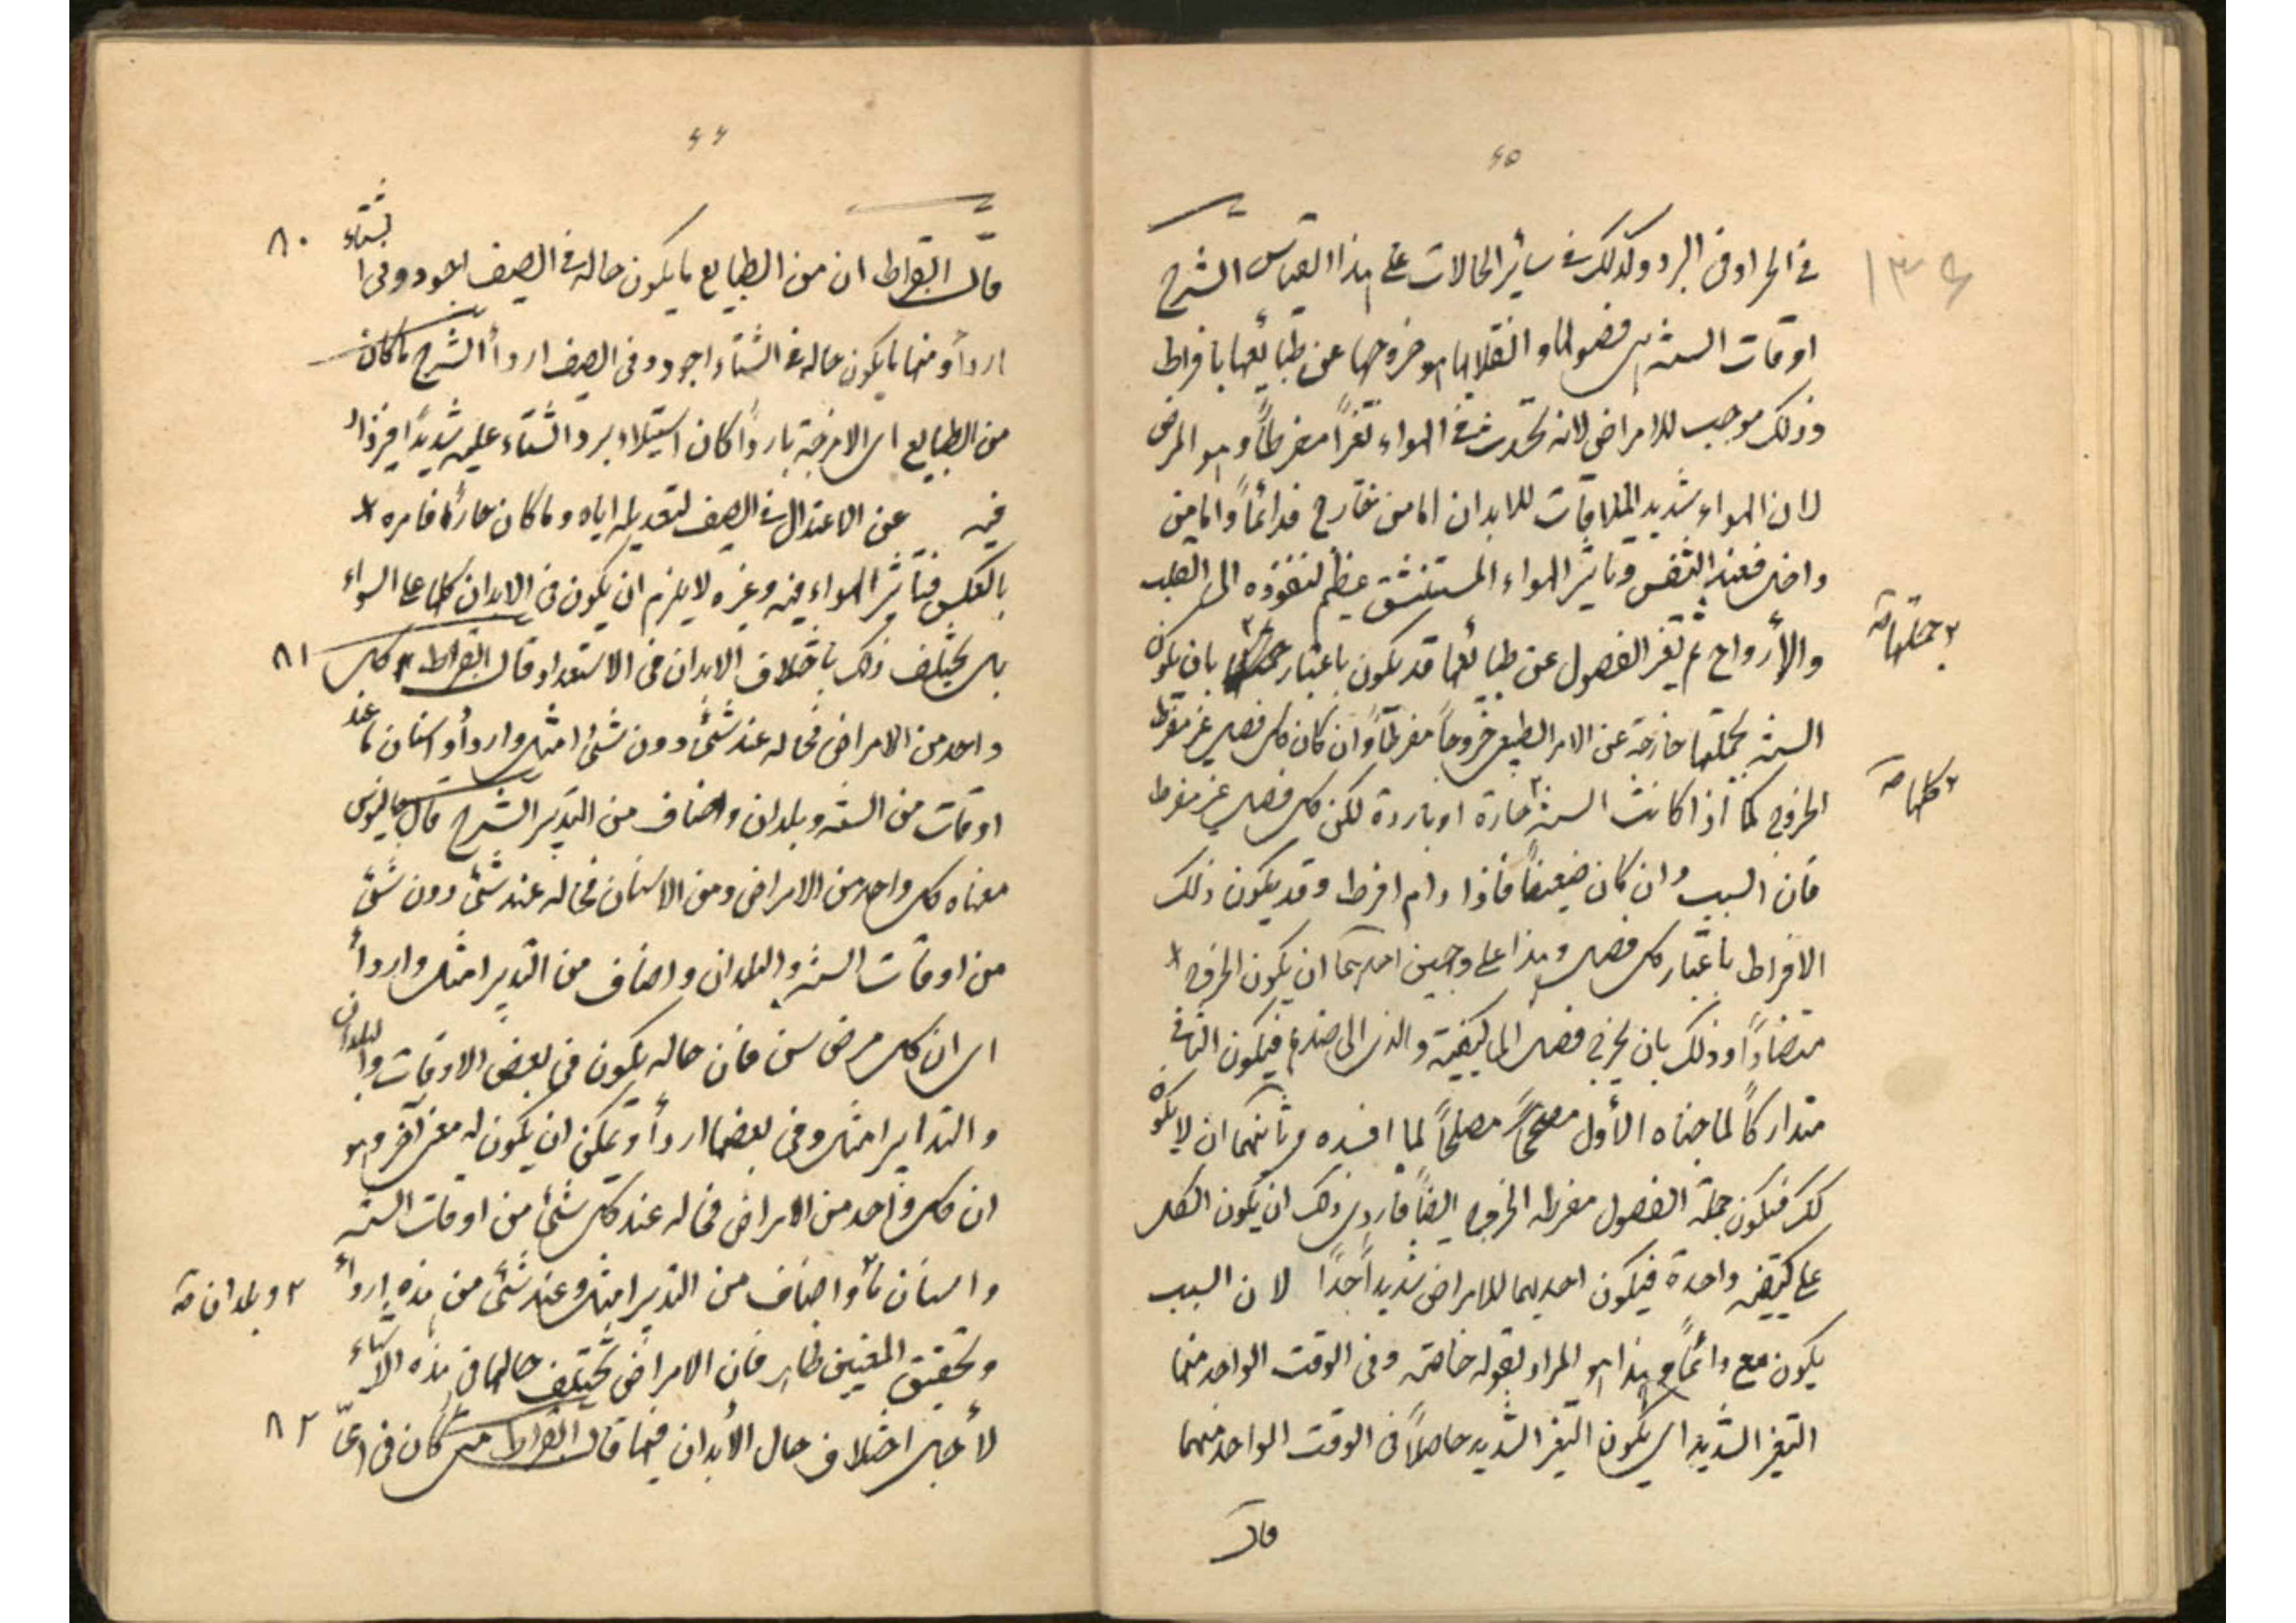 ٦٥
في الحر او في البرد وكذلك في سائر الحالات على هذا القياس الشرح
١٣٤
اوقات السنة هي فصولها وانقلابها هو خروجها عن طبائعها بافراط
وذلك موجب للامراض لانه يحدث في الهواء تغيراً مفرطاً وهو المرض
لان الهواء شديد الملاقات للابدان اما من خارج فدائماً واما من
داخل فعند التنفس وتاثير الهواء المستنشق عظيم لنفوذه الى القلب
والأرواح ثم تغير الفصول عن طبائعها قد يكون باعتبار جملتها بان يكون
٢ جملتها صح
السنة بجملتها خارجة عن الامر الطبيعي خروجاً مفرطاً وان كان كل فصل غير مفرط
الخروج كما اذا كانت السنة ٢ حارة او باردة لكن كل فصل غير مفرط
٢ كلها صح
فان السبب وان كان ضعيفاً فاذا دام افرط وقد يكون ذلك
الافراط باعتبار كل فصل وهذا على وجهين احدهما ان يكون الخروج
متضاداً وذلك بان يخرج فصل الى كيفية والذي الى ضدها فيكون الثاني
متداركاً لما جناه الأول مصلحاً لما افسده وثانيهما ان لا يكون
كك فيكون جملة الفصول مفرطه الخروج ايضاً فاردى ذلك ان يكون الكل
على كيفية واحدة فيكون احديهما للامراض شديداً جداً لان السبب
يكون مع دائماً وهذا هو المراد بقوله خاصة وفي الوقت الواحد منها
التغير الشديد اي يكون التغير الشديد حاصلاً في الوقت الواحد منهما
قال
٦٦
قال ابقراط ان من الطبايع ما يكون حاله في الصيف اجود وفي الشتاء
٨٠
اردأ ومنها ما يكون حاله في الشتاء اجود وفي الصيف اردأ الشرح ما كان
من الطبايع اي الامزجة بارداً كان استيلاء برد الشتاء عليه شديداً
فيه عن الاعتدال في الصيف لتعديله اياه وما كان حاراً فامره
بالعكس فتأثير الهواء فيه وغيره لا يلزم ان يكون في الابدان كلها على السواء
بل يختلف ذلك باختلاف الابدان في الاستعداد قال ابقراط كل
٨١
واحد من الامراض فحاله عند شئ دون شئ امثل واردأ واسنان ما عند
اوقات من السنة وبلدان واصناف من التدبير الشرح قال جالينوس
معناه كل واحد من الامراض ومن الاسنان فحاله عند شئ دون شئ
من اوقات السنة والبلدان واصناف من التدبير امثل واردأ
اي ان كل مرض سن فان حاله يكون في بعض الاوقات والبلدان
والتدابير امثل وفي بعضها اردأ ويمكن ان يكون له معنى آخر وهو
ان كل واحد من الامراض فحاله عند كل شئ من اوقات السنة
واسنان ما ٢ واصناف من التدبير امثل وعند شئ من هذه اردأ
٢ وبلدان صح
وتحقيق المعنيين ظاهر فان الامراض تختلف حالها في هذه الاشياء
لأجل اختلاف حال الأبدان فيها قال ابقراط متى كان في اى
٨٢